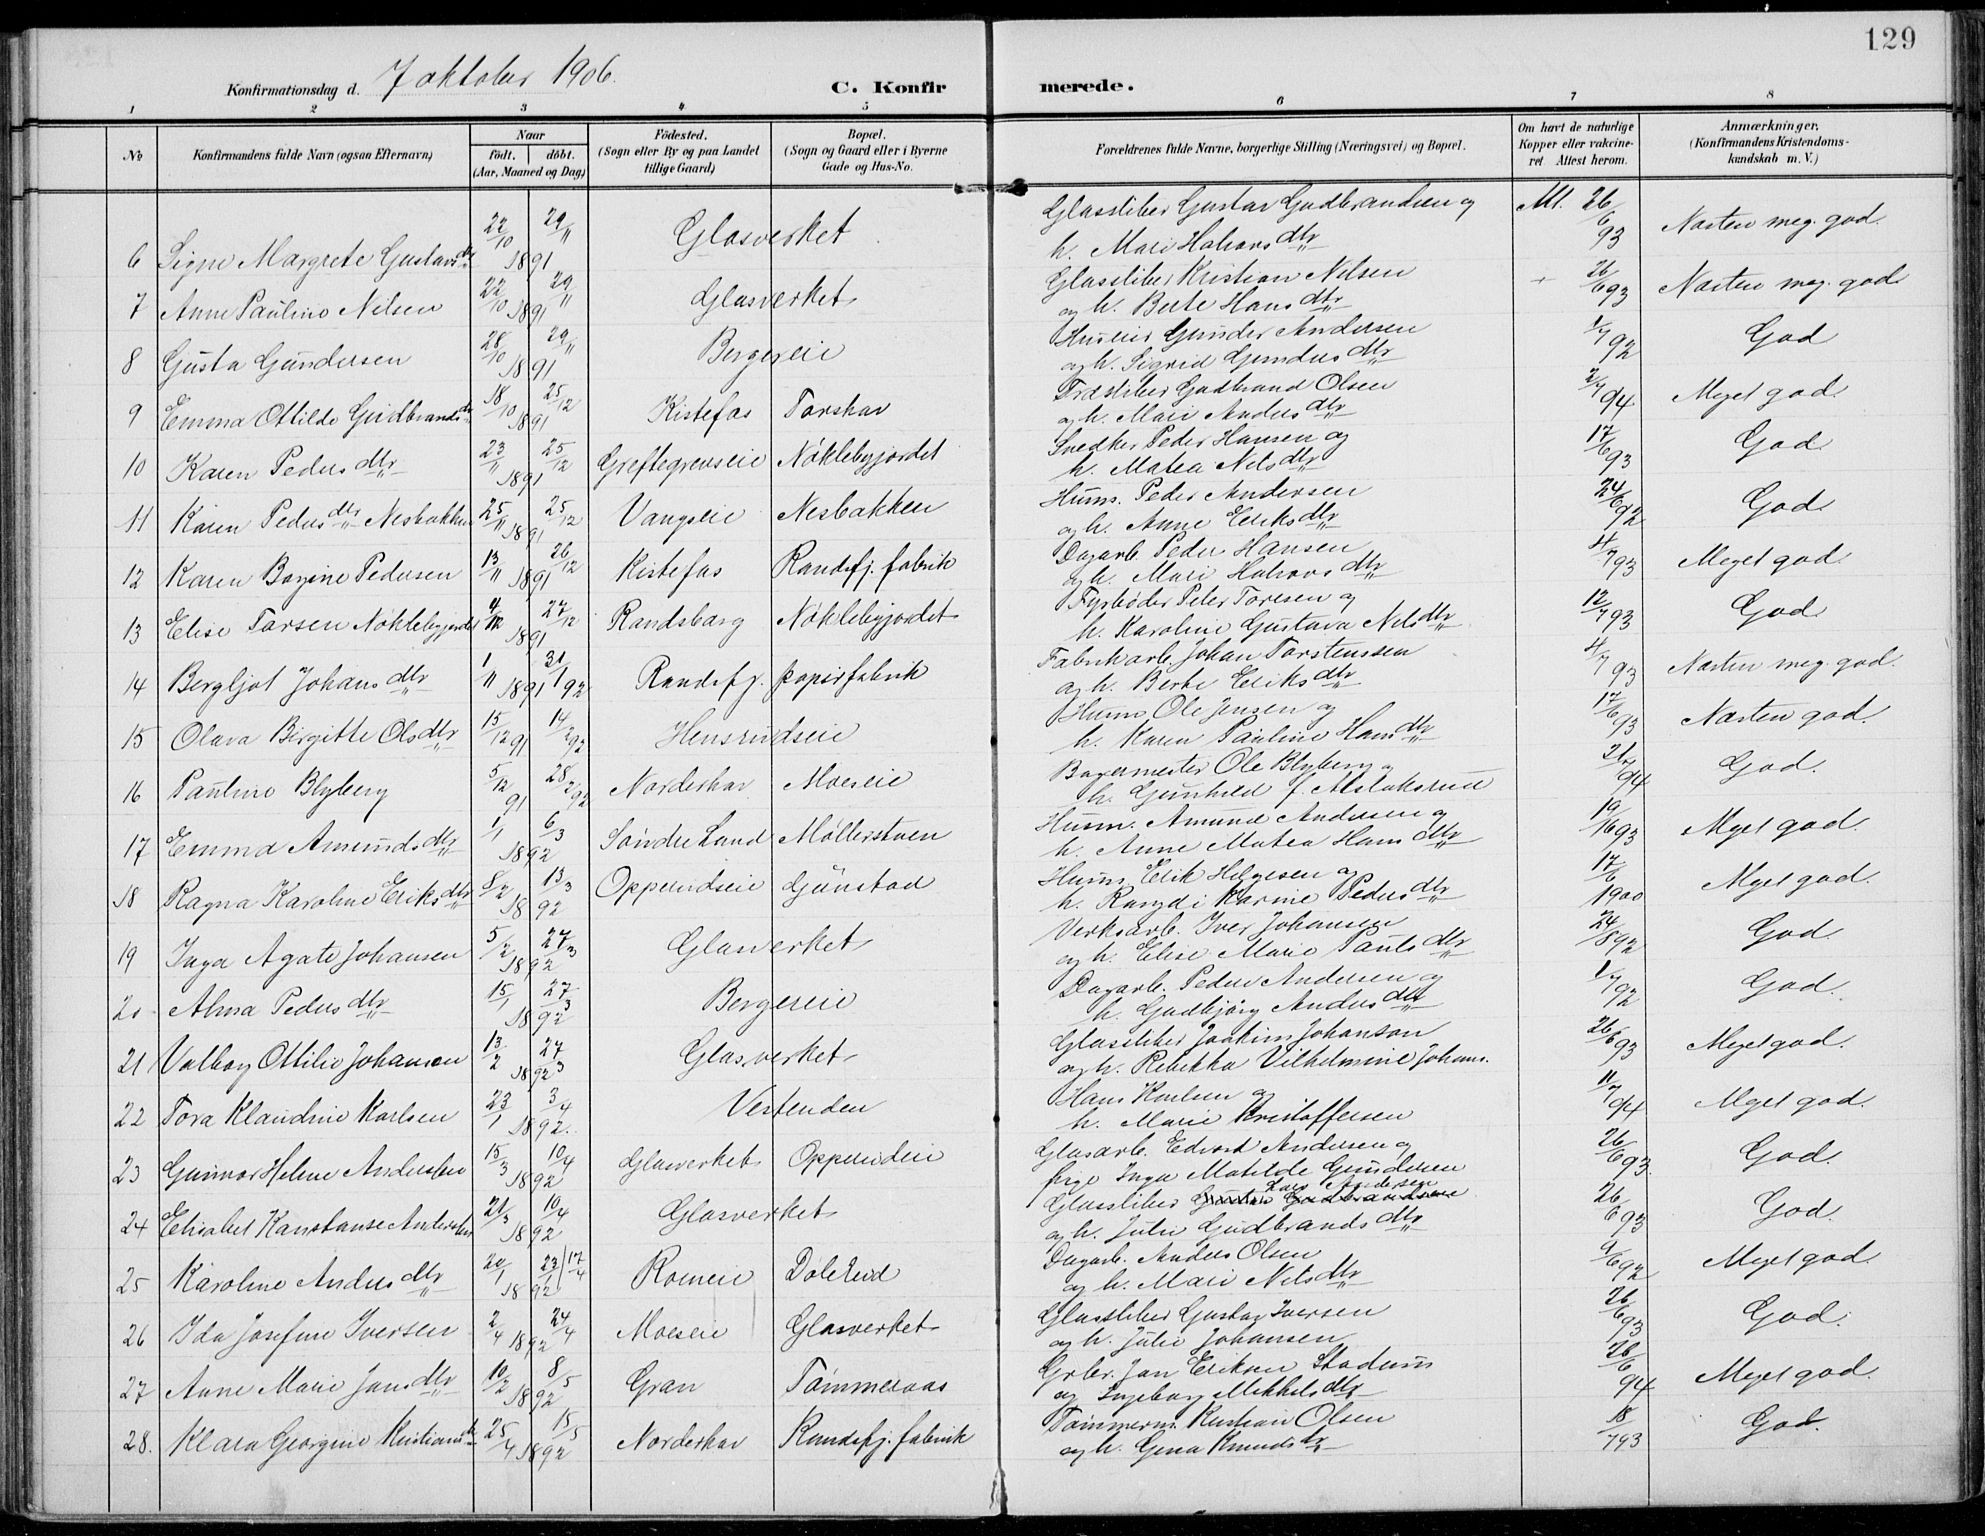 129
Konfirmationsdag d. 7 oktober 1906.
C. Konfirmerede.
1 2 3 4 5 6 7 8
No
Konfirmandens fulde Navn (ogsaa Efternavn)
Naar
födt. döbt.
(Aar, Maaned og Dag)
Födested.
(Sogn eller By og paa Landet
tillige Gaard)
Bopæl.
(Sogn og Gaard eller i Byerne
Gade og Hus-No.
Forældrenes fulde Navne, borgerlige Stilling (Næringsvei) og Bopæl.
Om havt de naturlige
Kopper eller vakcineret
Attest herom.
Anmærkninger.
(Konfirmandens Kristendomskundskab
m. V.)
6 Signe Margrete Gustavsdtr 22/10 1891 29/11 Glasverket Glassliber Gustav Gudbrandsen og Att. 26/6 93 Næsten meg. god.
h. Mari Halvorsdtr
7 Anne Pauline Nilsen 22/10 1891 29/11 Glasverket Glassliber Kristian Nilsen 26/6 93 Næsten meg. god
og h. Berte Hansdtr
8 Gusta Gundersen 28/10 1891 29/11 Bergereie Huseier Gunder Andersen 1/7 92 God
og h. Sigrid Gundersdtr
9 Emma Ottilde Gudbrandsdtr 18/10 1891 25/12 Kistefos Torshov Træsliber Gudbrand Olsen 2/7 94 Meget god
og h. Mari Andersdtr
10 Karen Pedersdtr 23/11 1891 25/12 Greftegrevseie Nöklebyjordet Snedker Peder Hansen og 17/6 93 God
h. Matea Nelsdtr
11 Karen Pedersdtr Nesbakken 25/11 1891 25/12 Vangseie Nesbakken Husm. Peder Andersen 24/6 92 God
og h. Anne Eriksdtr
12 Karen Bazine Pedersen 13/11 1891 26/12 Kistefos Randsfj. fabrik Dagarb. Peder Hansen 4/7 93 Meget god
og h. Mari Halvorsdtr
13 Elise Torsen Nöklebyjordet 4/12 1891 27/12 Randsborg Nöklebyjordet Fyrböder Peter Toresen og 12/7 93 God
h. Karoline Gustava Nelsdtr
14 Bergljot Johansdtr 1/11 1891 31/1 92 Randsfj. papirfabrik Fabrikarb. Johan Torstenssen 4/7 93 Næsten meg. god.
og h. Berte Eriksdtr
15 Olava Birgitte Olsdtr 15/12 91 14/2 92 Hensrudseie Husm. Ole Jensen og 17/6 93 Næsten god.
h. Karen Pauline Hansdtr
16 Pauline Blyberg 5/12 91 28/2 92 Norderhov Moeseie Bagermester Ole Blyberg og 26/7 94 God.
h. Gunhild f. Aslaksrud
17 Emma Amundsdtr 1/1 1892 6/3 Söndre Land Möllerstuen Husm. Amund Andersen og 19/6 93 Meget god.
h. Anne Matea Hansdtr
18 Ragna Karoline Eriksdtr 8/2 1892 13/3 Opperudseie Gunstad Husm. Erik Helgesen og 17/6 1900 Meget god.
h. Rangdi Karine Pedersdtr
19 Inga Agate Johansen 5/2 1892 27/3 Glasverket Verksarb. Iver Johansen 24/8 92 God.
og h. Elise Marie Paulsdtr
20 Alma Pedersdtr 15/1 1892 27/3 Bergereie Dagarb. Peder Andersen og 1/7 92 God.
h. Gudbjörg Andersdtr
21 Valborg Ottilie Johansen 13/2 1892 27/3 Glasverket Glassliber Joakim Johanson 26/6 93 Meget god.
og h. Rebekka Vilhelmine Johans.
22 Tora Klaudine Karlsen 23/1 1892 3/4 Vestenden Hans Karlsen og 11/7 94 Meget god.
h. Marie Kristoffersen
23 Gunvor Helene Anderssen 15/3 1892 10/4 Glasverket Opperudeie Glasarb. Edvart Andersen og 26/6 93. God.
pige Inga Matilde Gundersen
24 Elisabet Konstanse Anderssen 21/3 1892 10/4 Glasverket Glassliber Gustav Gudbrandsen Lars Andersen 26/6 93 God.
og h. Julie Gudbrandsdtr
25 Karoline Andersdtr 20/1 1892 23/1 17/4 Roeneie Dölerud Dagarb. Anders Olsen 9/6 92 Meget god.
og h. Mari Nelsdtr
26 Ida Josefine Iversen 2/4 1892 24/4 Moeseie Glasverket Glassliber Gustav Iversen 26/6 93 God.
og h. Julie Johansen
27 Anne Marie Jansdtr 10/2 1892 8/5 Gran Tömmeraas Grbr. Jan Eriksen Stadum 26/6 94 Meget god.
og Ingeborg Mikkelsdtr
28. Klara Georgine Kristiansdtr 25/4 1892 15/5 Norderhov Randsfj. fabrik Tömmerm. Kristian Olsen 18/7 93 God.
og h. Gina Knudsdtr